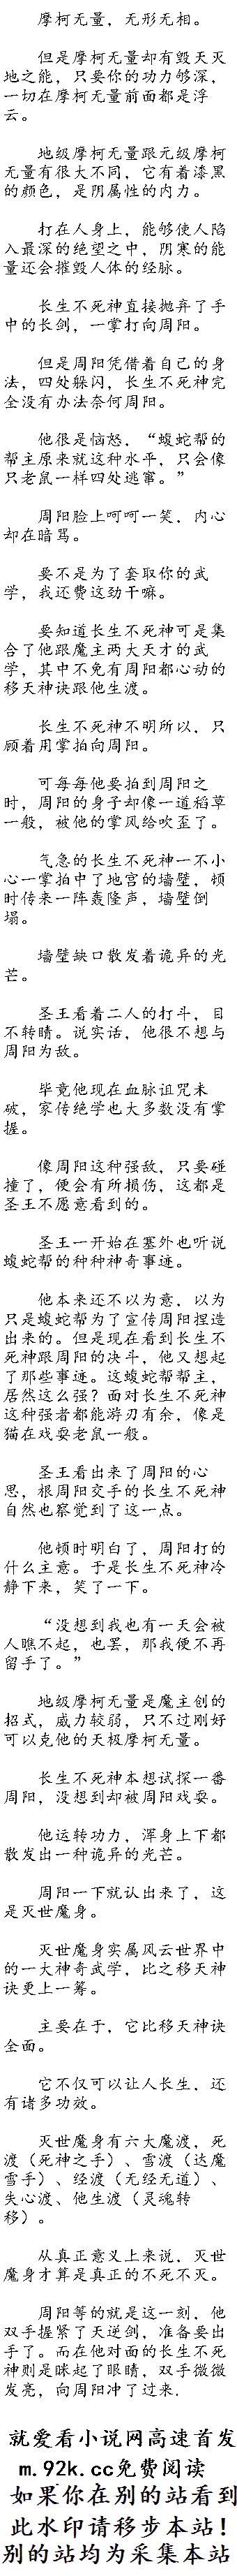 摩柯无量，无形无相。
但是摩柯无量却有毁天灭
地之能，只要你的功力够深，
一切在摩柯无量前面都是浮
云。
地级摩柯无量跟元级摩柯
无量有很大不同，它有着漆黑
的颜色，是阴属性的内力。
打在人身上，能够使人陷
入最深的绝望之中，阴寒的能
量还会摧毁人体的经脉。
长生不死神直接抛弃了手
中的长剑，一掌打向周阳。
但是周阳凭借着自己的身
法，四处躲闪，长生不死神完
全没有办法奈何周阳。
他很是恼怒，“蝮蛇帮的
帮主原来就这种水平，只会像
只老鼠一样四处逃窜。”
周阳脸上呵呵一笑，内心
却在暗骂。
要不是为了套取你的武
学，我还费这劲干嘛。
要知道长生不死神可是集
合了他跟魔主两大天才的武
学，其中不免有周阳都心动的
移天神诀跟他生渡。
长生不死神不明所以，只
顾着用掌拍向周阳。
可每每他要拍到周阳之
时，周阳的身子却像一道稻草
一般，被他的掌风给吹歪了。
气急的长生不死神一不小
心一掌拍中了地宫的墙壁，顿
时传来一阵轰隆声，墙壁倒
塌。
墙壁缺口散发着诡异的光
芒。
圣王看着二人的打斗，目
不转睛。说实话，他很不想与
周阳为敌。
毕竟他现在血脉诅咒未
破，家传绝学也大多数没有掌
握。
像周阳这种强敌，只要碰
撞了，便会有所损伤，这都是
圣王不愿意看到的。
圣王一开始在塞外也听说
蝮蛇帮的种种神奇事迹。
他本来还不以为意，以为
只是蝮蛇帮为了宣传周阳捏造
出来的。但是现在看到长生不
死神跟周阳的决斗，他又想起
了那些事迹。这蝮蛇帮帮主，
居然这么强？面对长生不死神
这种强者都能游刃有余，像是
猫在戏耍老鼠一般。
圣王看出来了周阳的心
思，根周阳交手的长生不死神
自然也察觉到了这一点。
他顿时明白了，周阳打的
什么主意。于是长生不死神冷
静下来，笑了一下。
“没想到我也有一天会被
人瞧不起，也罢，那我便不再
留手了。”
地级摩柯无量是魔主创的
招式，威力较弱，只不过刚好
可以克他的天极摩柯无量。
长生不死神本想试探一番
周阳，没想到却被周阳戏耍。
他运转功力，浑身上下都
散发出一种诡异的光芒。
周阳一下就认出来了，这
是灭世魔身。
灭世魔身实属风云世界中
的一大神奇武学，比之移天神
诀更上一筹。
主要在于，它比移天神诀
全面。
它不仅可以让人长生，还
有诸多功效。
灭世魔身有六大魔渡，死
渡（死神之手）、雪渡（达魔
雪手）、经渡（无经无道）、
失心渡、他生渡（灵魂转
移）。
从真正意义上来说，灭世
魔身才算是真正的不死不灭。
周阳等的就是这一刻，他
双手握紧了天逆剑，准备要出
手了。而在他对面的长生不死
神则是眯起了眼睛，双手微微
发亮，向周阳冲了过来.
就爱看小说网高速首发
m.92k.cc免费阅读
如果你在别的站看到
此水印请移步本站！
别的站均为采集本站